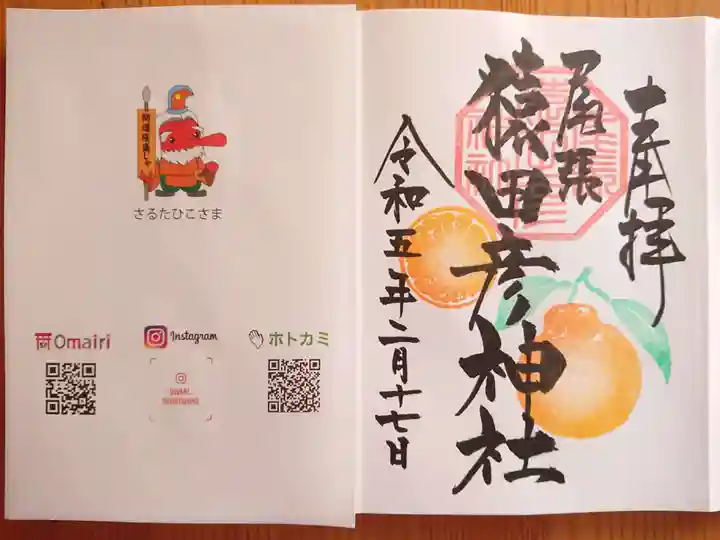 開運隆盛じゃ
さるたひこさま
Omairi
Instagram
ホトカミ
奉拝
尾張
猿田彦神社
令和五年二月十七日